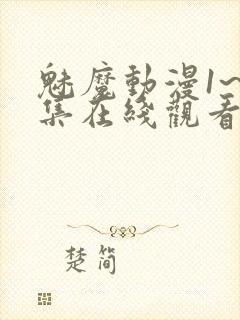 魅魔動漫1~
集在綫觀看
楚简